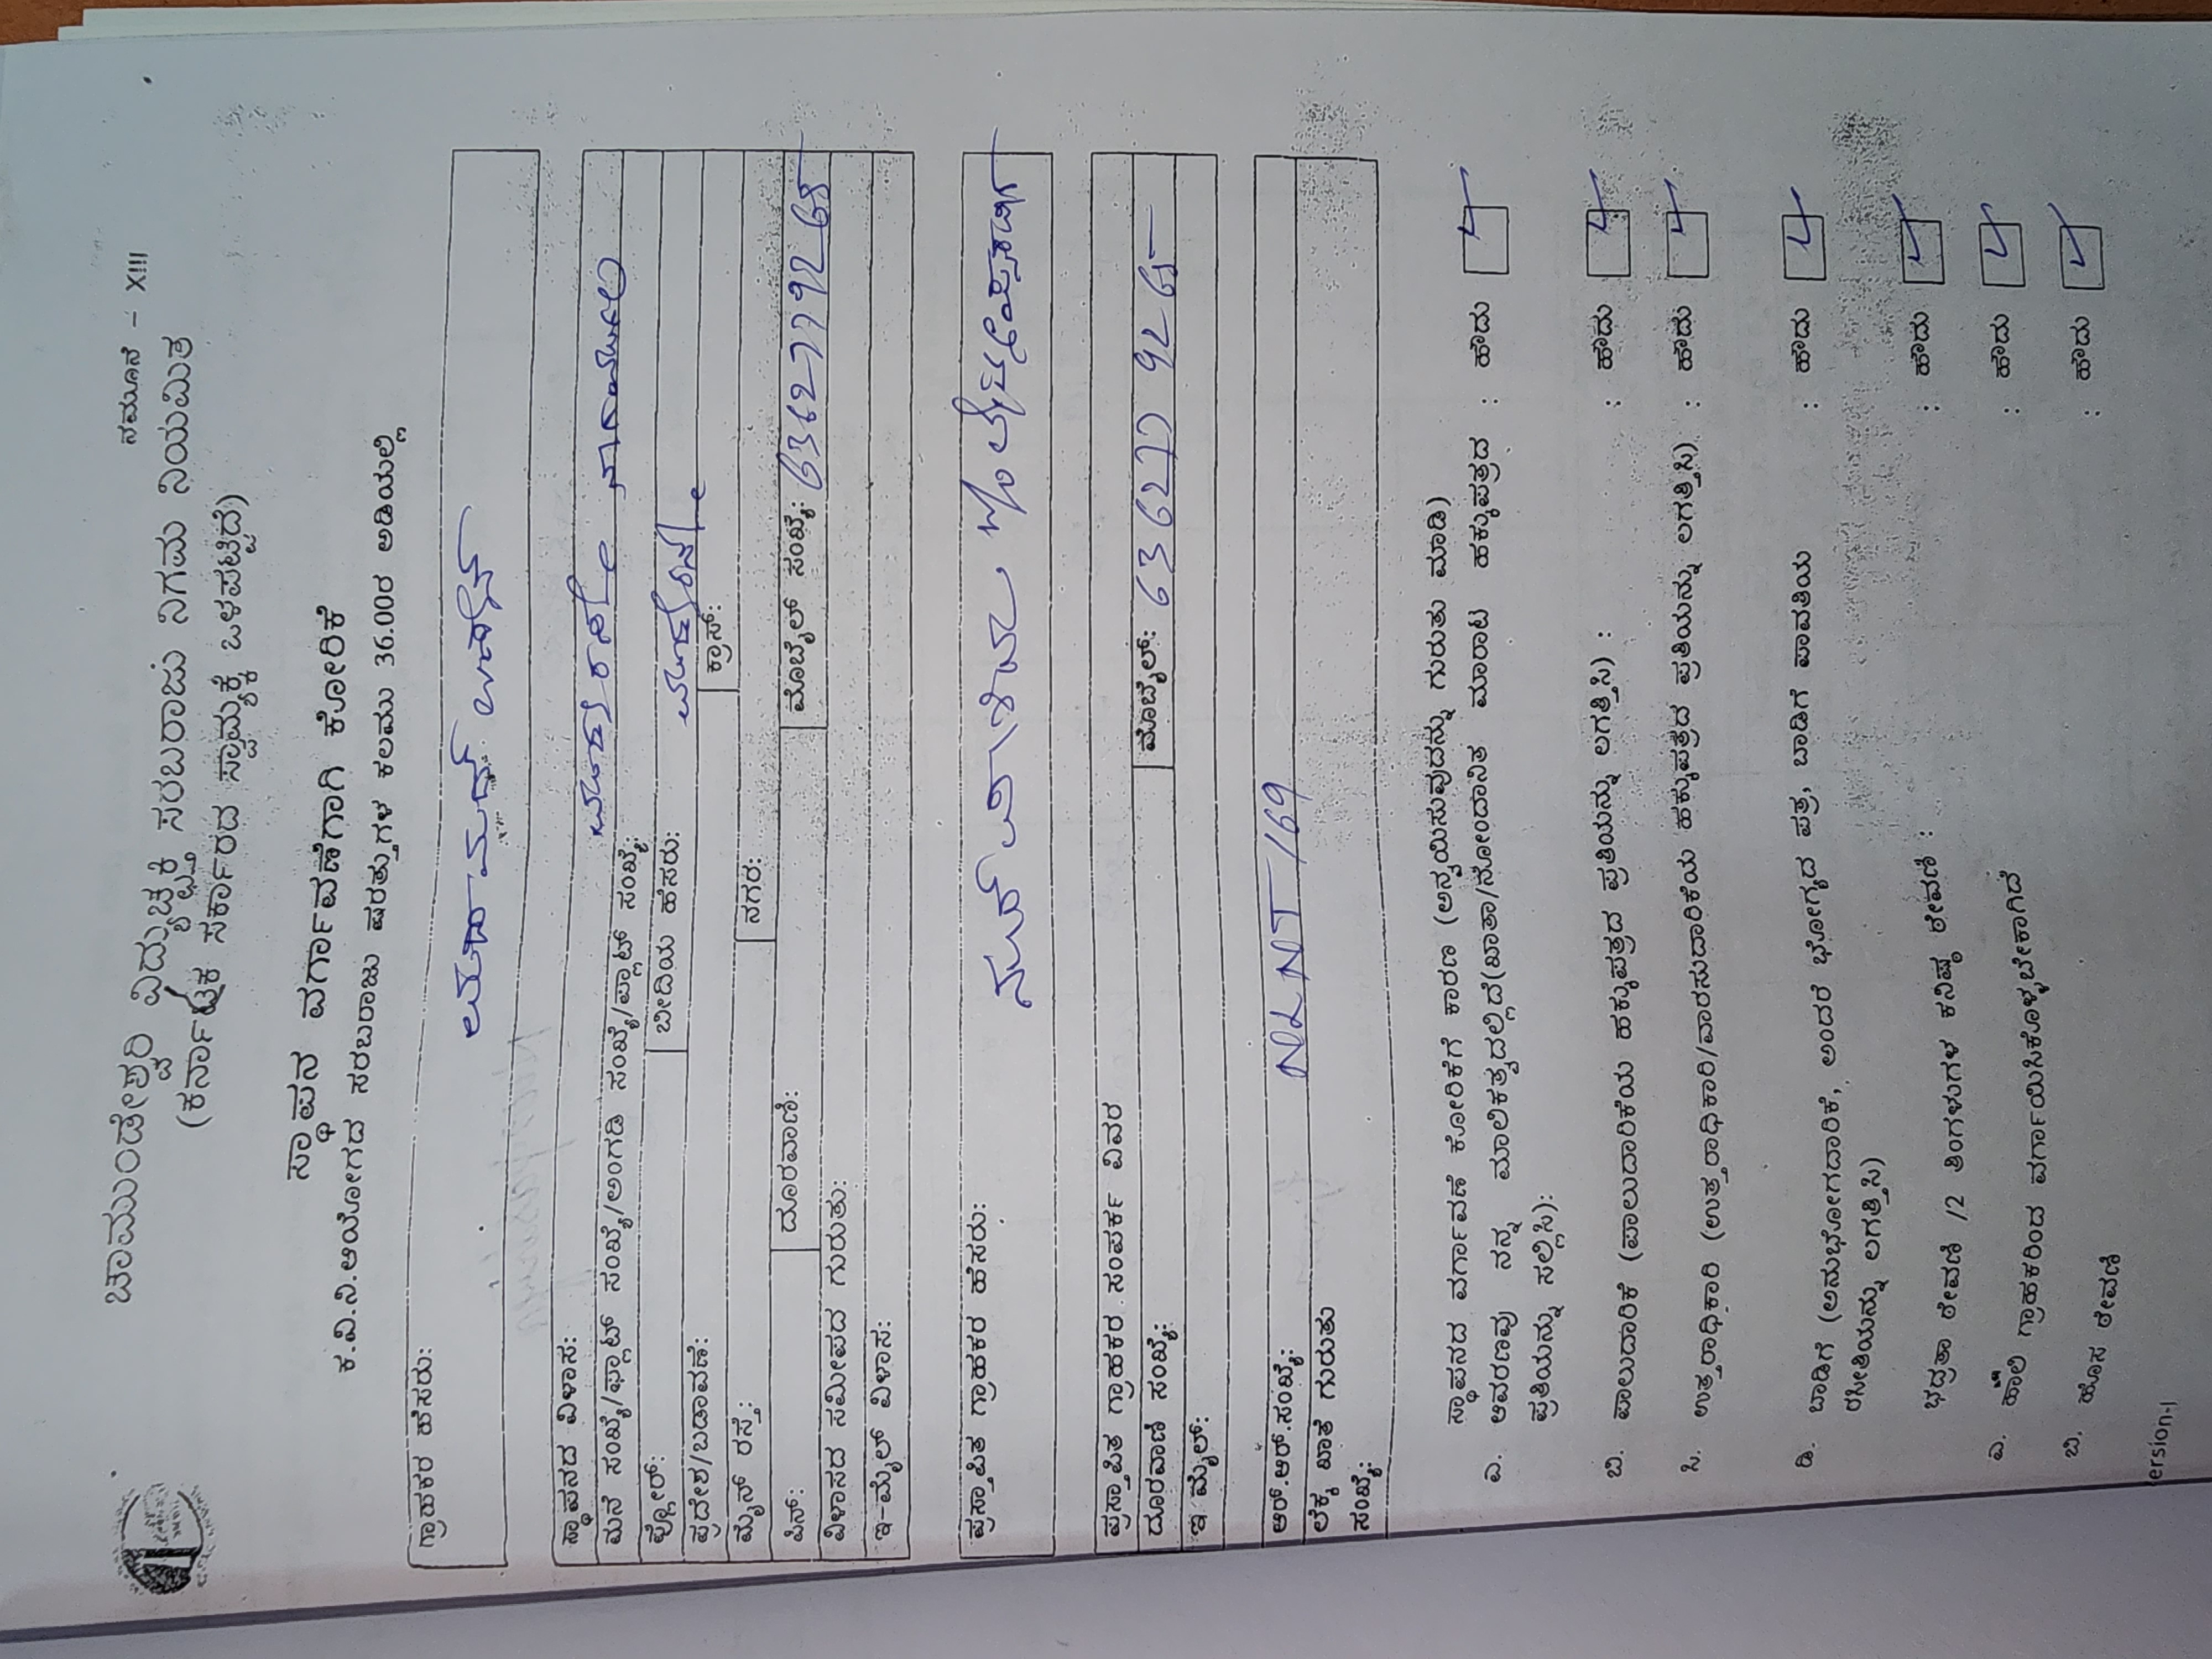 ನಮೂನೆ – XIII
ಚಾಮುಂಡೇಶ್ವರಿ ವಿದ್ಯುಚ್ಛಕ್ತಿ ಸರಬರಾಜು ನಿಗಮ ನಿಯಮಿತ
(ಕರ್ನಾಟಕ ಸರ್ಕಾರದ ಸ್ವಾಮ್ಯಕ್ಕೆ ಒಳಪಟ್ಟಿದೆ)
ಸ್ಥಾಪನ ವರ್ಗಾವಣೆಗಾಗಿ ಕೋರಿಕೆ
ಕ.ವಿ.ನಿ.ಆಯೋಗದ ಸರಬರಾಜು ಷರತ್ತುಗಳ ಕಲಮು 36.00ರ ಅಡಿಯಲ್ಲಿ
ಗ್ರಾಹಕರ ಹೆಸರು:
ಸ್ಥಾಪನದ ವಿಳಾಸ:
ಮನೆ ಸಂಖ್ಯೆ/ಫ್ಲಾಟ್ ಸಂಖ್ಯೆ/ಅಂಗಡಿ ಸಂಖ್ಯೆ/ಪ್ಲಾಟ್ ಸಂಖ್ಯೆ:
ಫ್ಲೋರ್: ಬೀದಿಯ ಹೆಸರು:
ಪ್ರದೇಶ/ಬಡಾವಣೆ: ಕ್ರಾಸ್:
ಮೈನ್ ರಸ್ತೆ: ನಗರ:
ಪಿನ್: ದೂರವಾಣಿ: ಮೊಬೈಲ್ ಸಂಖ್ಯೆ: 6362779265
ವಿಳಾಸದ ಸಮೀಪದ ಗುರುತು:
ಇ-ಮೈಲ್ ವಿಳಾಸ:
ಪ್ರಸ್ತಾಪಿತ ಗ್ರಾಹಕರ ಹೆಸರು:
ಪ್ರಸ್ತಾಪಿತ ಗ್ರಾಹಕರ ಸಂಪರ್ಕ ವಿವರ
ದೂರವಾಣಿ ಸಂಖ್ಯೆ: ಮೊಬೈಲ್: 6362779265
ಇ ಮೈಲ್:
ಆರ್.ಆರ್.ಸಂಖ್ಯೆ: NLNT 169
ಲೆಕ್ಕ ಖಾತೆ ಗುರುತು
ಸಂಖ್ಯೆ:
ಸ್ಥಾಪನದ ವರ್ಗಾವಣೆ ಕೋರಿಕೆಗೆ ಕಾರಣ (ಅನ್ವಯಿಸುವುದನ್ನು ಗುರುತು ಮಾಡಿ)
ಎ. ಆವರಣವು ನನ್ನ ಮಾಲಿಕತ್ವದಲ್ಲಿದೆ(ಖಾತಾ/ನೋಂದಾನಿತ ಮಾರಾಟ ಹಕ್ಕುಪತ್ರದ : ಹೌದು
ಪ್ರತಿಯನ್ನು ಸಲ್ಲಿಸಿ):
ಬಿ. ಪಾಲುದಾರಿಕೆ (ಪಾಲುದಾರಿಕೆಯ ಹಕ್ಕುಪತ್ರದ ಪ್ರತಿಯನ್ನು ಲಗತ್ತಿಸಿ) : : ಹೌದು
ಸಿ. ಉತ್ತರಾಧಿಕಾರಿ (ಉತ್ತರಾಧಿಕಾರಿ/ವಾರಸುದಾರಿಕೆಯ ಹಕ್ಕುಪತ್ರದ ಪ್ರತಿಯನ್ನು ಲಗತ್ತಿಸಿ) : ಹೌದು
ಡಿ. ಬಾಡಿಗೆ (ಅನುಭೋಗದಾರಿಕೆ, ಅಂದರೆ ಭೋಗ್ಯದ ಪತ್ರ, ಬಾಡಿಗೆ ಪಾವತಿಯ : ಹೌದು
ರಸೀತಿಯನ್ನು ಲಗತ್ತಿಸಿ)
ಭದ್ರತಾ ಠೇವಣಿ /2 ತಿಂಗಳುಗಳ ಕನಿಷ್ಠ ಠೇವಣಿ: : ಹೌದು
ಎ. ಹಾಲಿ ಗ್ರಾಹಕರಿಂದ ವರ್ಗಾಯಿಸಿಕೊಳ್ಳಬೇಕಾಗಿದೆ : ಹೌದು
ಬಿ. ಹೊಸ ಠೇವಣಿ : ಹೌದು
ersion-1